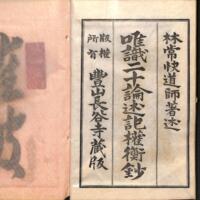 林常快道師著述
唯識二十論述記權衡鈔
版權所有
豐山長谷寺藏版